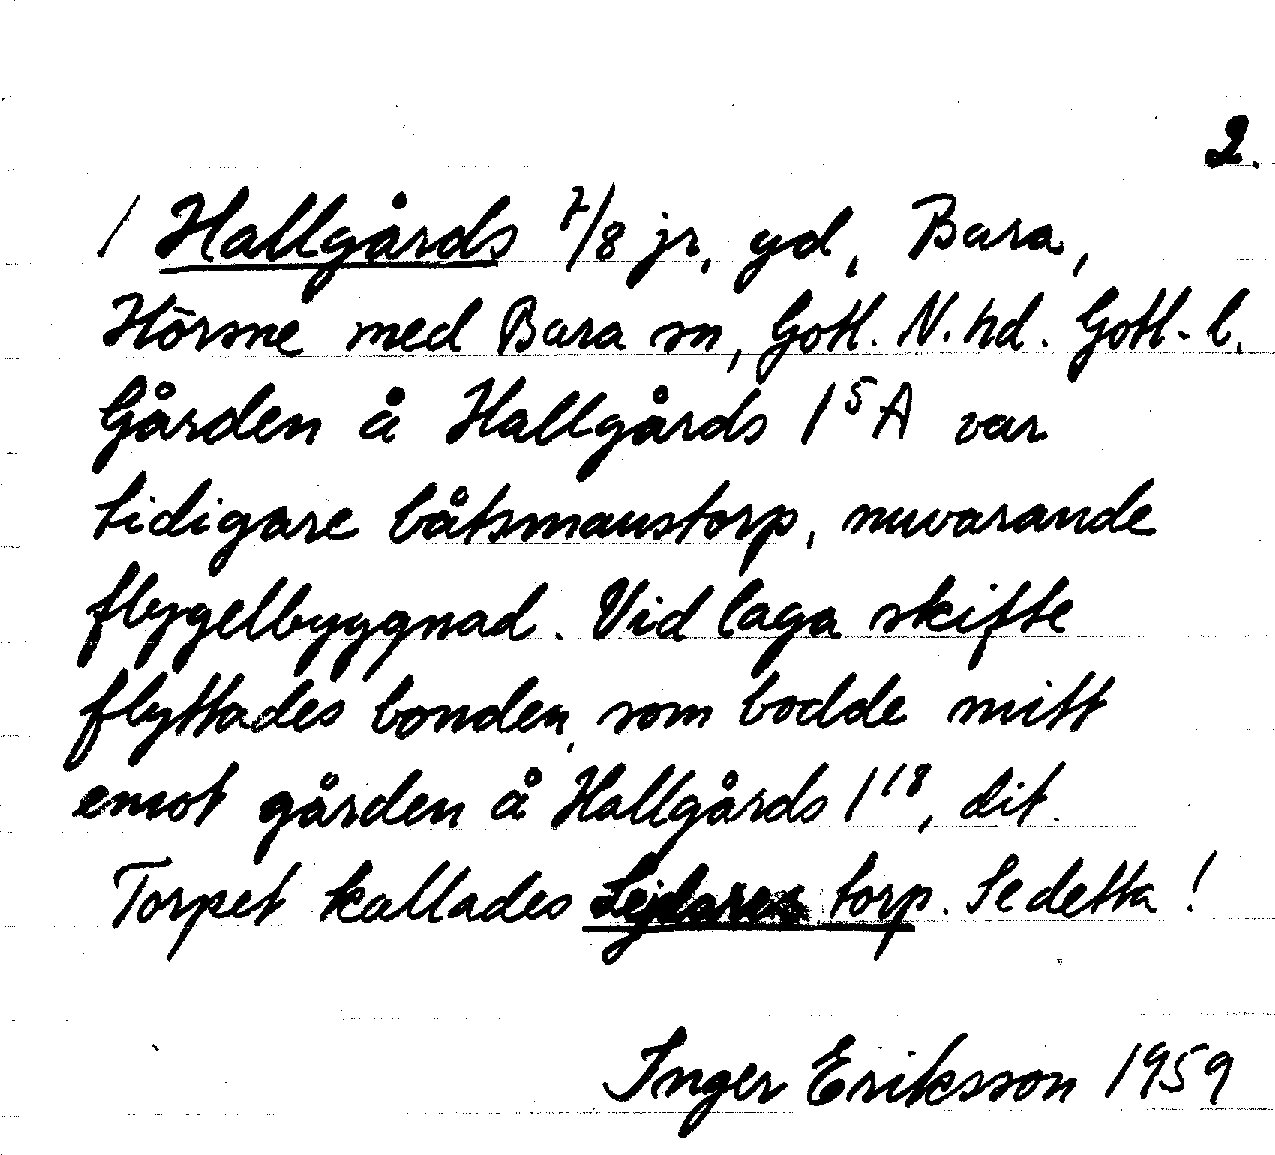 2.
/ Hallgårds 7/8 jr, gd, Bara,
Hörsne med Bara sn, Gotl. N. hd. Gotl. l.
Gården å Hallgårds 1⁵A var
tidigare båtsmanstorp, nuvarande
flygelbyggnad. Vid laga skifte
flyttades bonden, som bodde mitt
emot gården å Hallgårds 1¹⁸, dit.
Torpet kallades Lejdares torp. Se detta!
Inger Eriksson 1959